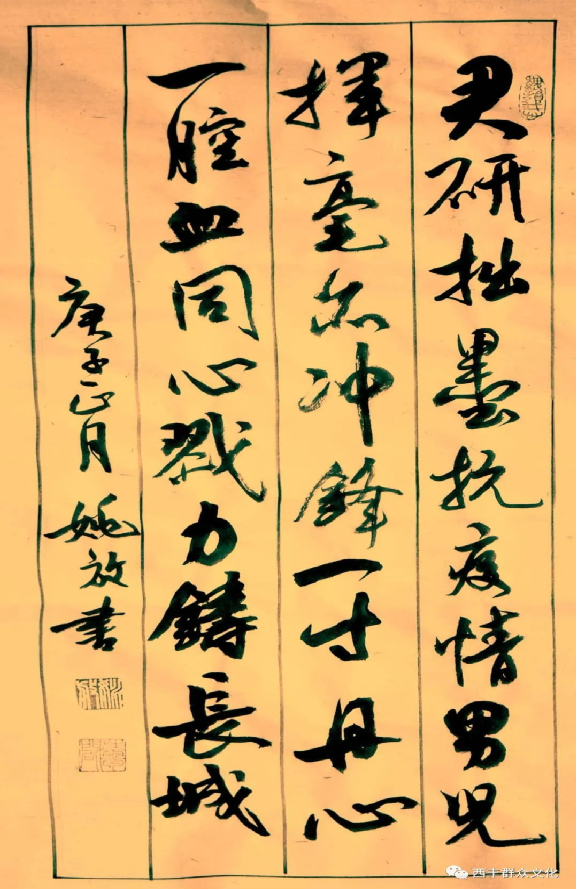 君研拙墨抗疫情男児
揮毫亦冲鋒一寸丹心
一腔血同心戮力鑄長城
庚子正月 姚放書
西丰群众文化